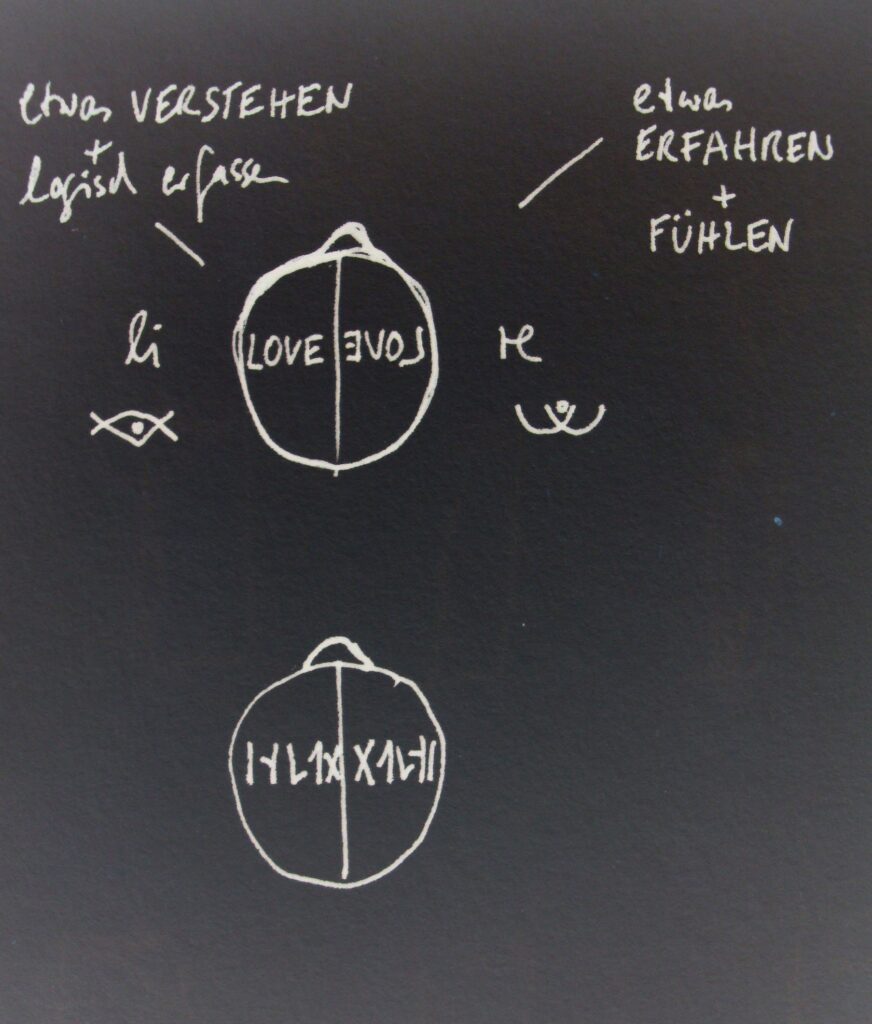 etwas VERSTEHEN
+
logisch erfassen
etwas
ERFAHREN
+
FÜHLEN
li
LOVE
LOVE
re